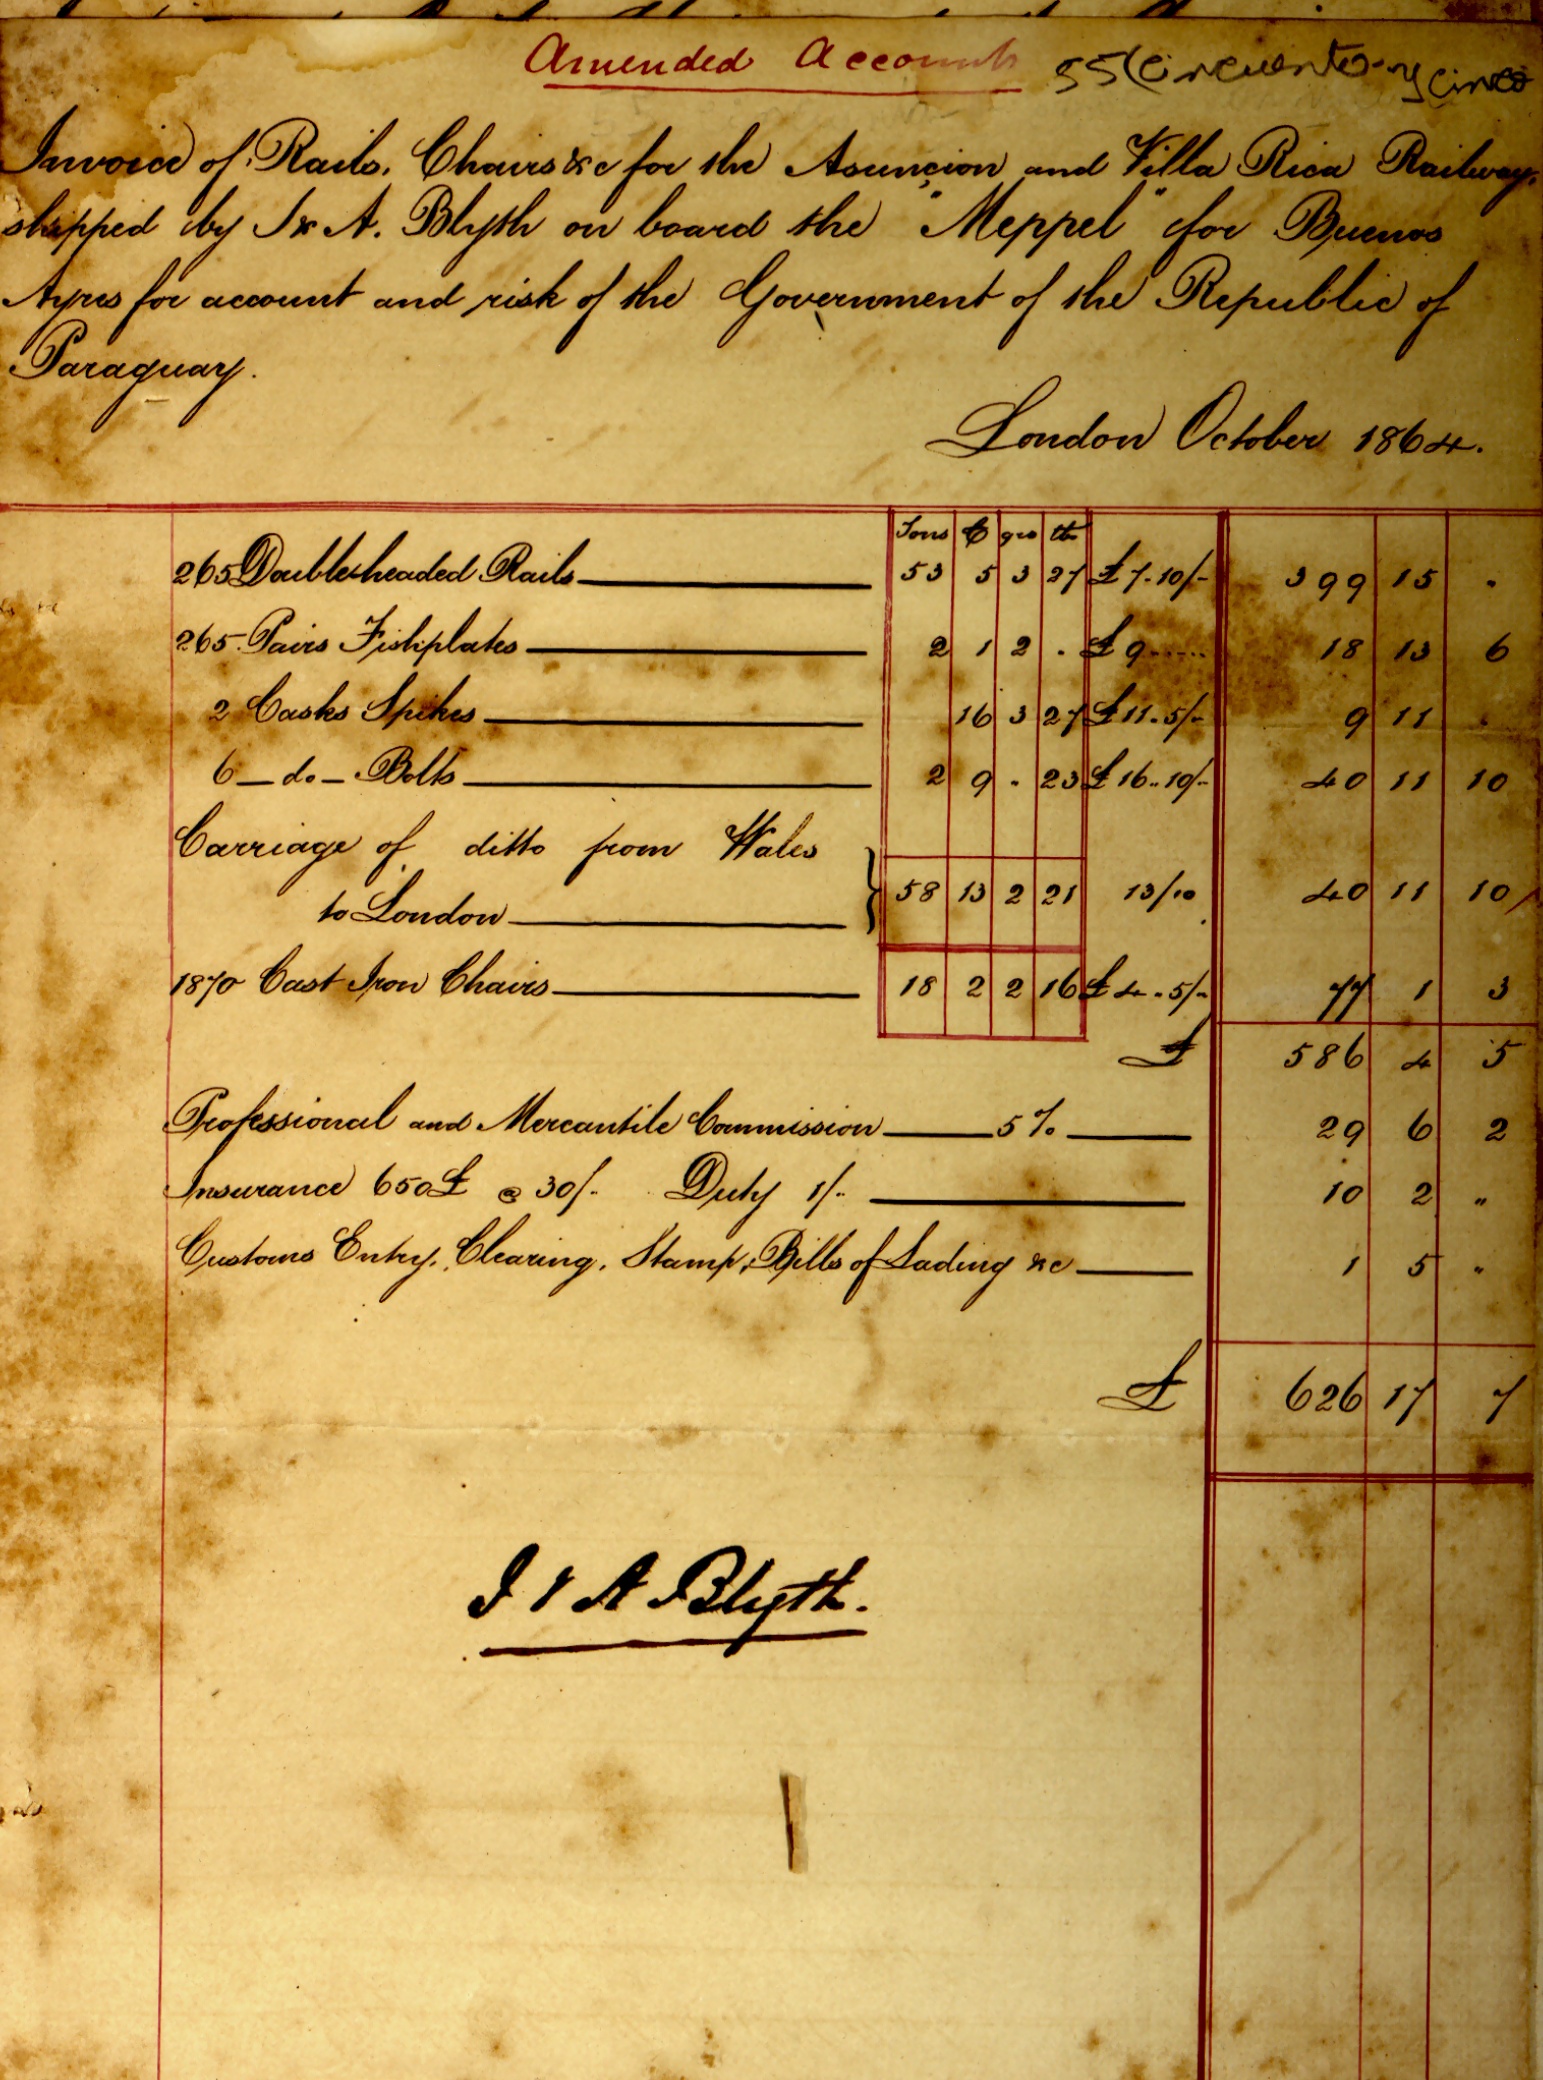 Amended Account 55 (Cincuenta y cinco
Invoice of Rails, Chairs &c for the Asuncion and Villa Rica Railway,
shipped by J & A. Blyth on board the "Meppel" for Buenos
Ayres for account and risk of the Government of the Republic of
Paraguay.
London October 1864.
Tons C qrs lb
265 Double-headed Rails 53 5 3 27 £7-10/- 399 15 "
265 Pairs Fishplates 2 1 2 . £9 18 13 6
2 Casks Spikes 16 3 27 £11-5/- 9 11 .
6 - do - Bolts 2 9 . 23 £16-10/- 40 11 10
Carriage of ditto from Wales
to London 58 13 2 21 13/10 40 11 10
1870 Cast Iron Chairs 18 2 2 16 £4-5/- 77 1 3
£ 586 4 5
Professional and Mercantile Commission 5% 29 6 2
Insurance 650£ @ 30/- Duty 1/- 10 2 "
Customs Entry, Clearing, Stamp, Bills of Lading &c 1 5 "
£ 626 17 7
J & A Blyth.